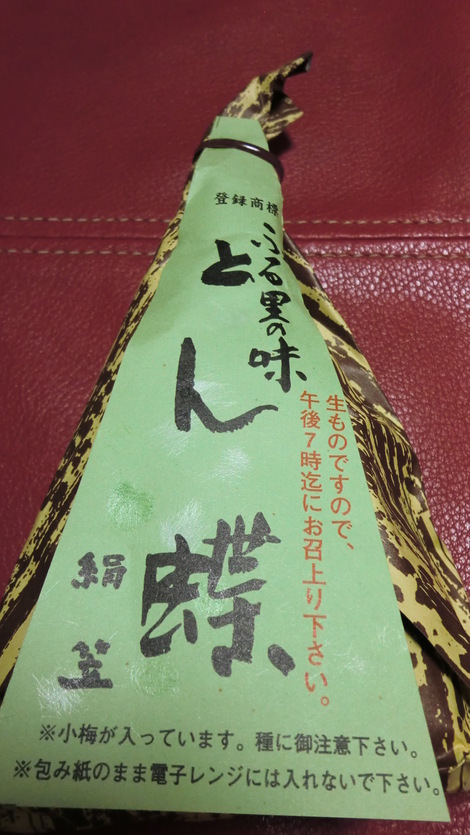 登録商標
ふる里の味
とん蝶
絹笠
生ものですので、
午後7時迄にお召上り下さい。
※小梅が入っています。種に御注意下さい。
※包み紙のまま電子レンジには入れないで下さい。